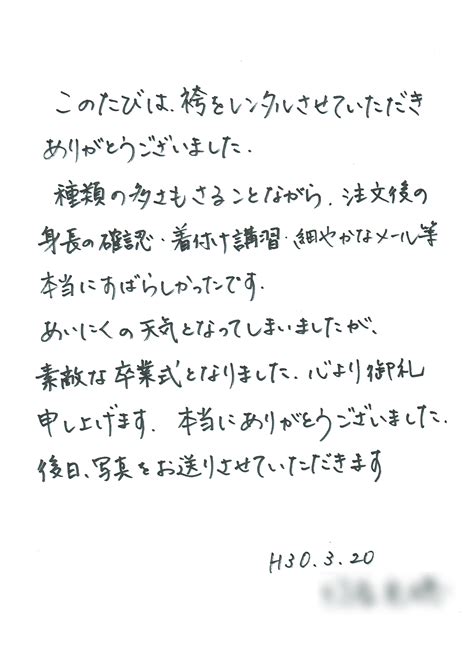 このたびは、袴をレンタルさせていただき
ありがとうございました.
種類の多さもさることながら、注文後の
身長の確認・着付け講習・細やかなメール等
本当にすばらしかったです.
あいにくの天気となってしまいましたが、
素敵な卒業式となりました. 心より御礼
申し上げます. 本当にありがとうございました.
後日、写真をお送りさせていただきます
H30.3.20